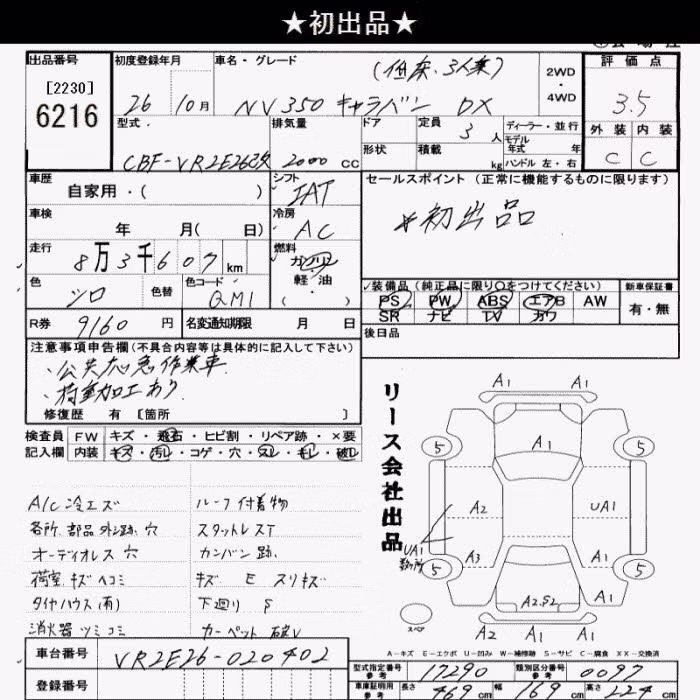 ★初出品★
出品番号
[2230]
6216
初度登録年月
26 10月
車名・グレード
(低床、3人乗)
NV350 キャラバン DX
2WD
・
4WD
評価点
3.5
外装 内装
C C
型式
CBF-VR2E26改
排気量
2000 cc
ドア
形状
定員
3 人
積載
kg
ディーラー・並行
モデル年式 年
ハンドル 左・右
車歴
自家用・( )
シフト
IAT
セールスポイント (正常に機能するものに限ります)
*初出品
車検
年 月( 日)
冷房
AC
走行
8万3千607 km
燃料
ガソリン
軽油
( ・ )
色
シロ
色替
色コード
QM1
装備品 (純正品に限り○をつけてください)
PS PW ABS エアB AW
SR ナビ TV カワ
新車保証書
有・無
R券 9160 円
名変通知期限 月 日
後日品
注意事項申告欄(不具合内容等は具体的に記入して下さい)
・公共応急作業車
・荷室加工あり
修復歴 有 [箇所 ]
検査員 FW キズ・飛石・ヒビ割・リペア跡・×要
記入欄 内装 キズ・汚レ・コゲ・穴・スレ・キレ・破レ
A/C 冷エズ
各所 部品 外シ跡、穴
オーディオレス 穴
荷室 キズ ヘコミ
タイヤハウス(有)
消火器 ツミコミ
ルーフ 付着物
スタットレスT
カンバン 跡
キズ E スリキズ
下廻り S
カーペット 破レ
リース会社出品
A1
A1 A1
5 5
A2 UA1
UA1
A3 A1
5 5
A2.S2 A1
スペア
A2 A1 A1
A-キズ E-エクボ U-凹み W-補修跡 S-サビ C-腐食 XX-交換済
車台番号 VR2E26-020402
登録番号
型式指定番号 参考 17290
類別区分番号 参考 0097
車庫証明用 参考 長さ 469 cm 幅 169 cm 高さ 224 cm